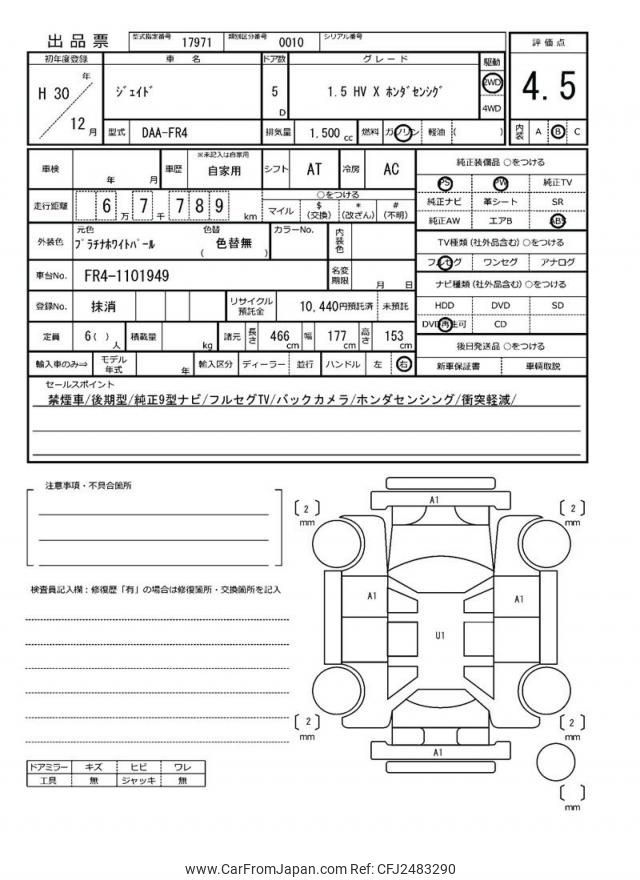 出品票 型式指定番号 17971 類別区分番号 0010 シリアル番号
初年度登録 車名 ドア数 グレード 駆動 評価点
H 30 年 12 月 ｼﾞｪｲﾄﾞ 5 D 1.5 HV X ﾎﾝﾀﾞｾﾝｼﾝｸﾞ 2WD 4WD 4.5
型式 DAA-FR4 排気量 1,500 cc 燃料 ガソリン 軽油 ( ) 内装 A B C
車検 年 月 車歴 ※未記入は自家用 自家用 シフト AT 冷房 AC 純正装備品 ○をつける
PS PW 純正TV
走行距離 6 万 7 千 7 8 9 km ○をつける
マイル $(交換) *(改ざん) #(不明)
純正ナビ 革シート SR
純正AW エアB ABS
外装色 元色 ﾌﾟﾗﾁﾅﾎﾜｲﾄﾊﾟｰﾙ 色替 ( 色替無 ) カラーNo. 内装色
TV種類(社外品含む)○をつける
フルセグ ワンセグ アナログ
車台No. FR4-1101949 名変期限 月 日
ナビ種類(社外品含む)○をつける
HDD DVD SD
登録No. 抹消 リサイクル預託金 10,440円預託済 未預託
DVD再生可 CD
定員 6( ) 人 積載量 kg 諸元 長さ 466 cm 幅 177 cm 高さ 153 cm
後日発送品 ○をつける
輸入車のみ⇒ モデル年式 年 輸入区分 ディーラー 並行 ハンドル 左 右
新車保証書 車輌取説
セールスポイント
禁煙車/後期型/純正9型ナビ/フルセグTV/バックカメラ/ホンダセンシング/衝突軽減/
注意事項・不具合箇所
A1
[ 2 ] mm
[ 2 ] mm
検査員記入欄：修復歴「有」の場合は修復箇所・交換箇所を記入
A1
A1
U1
[ 2 ] mm
[ 2 ] mm
A1
ドアミラー キズ ヒビ ワレ
工具 無 ジャッキ 無
[ ] mm
www.CarFromJapan.com Ref: CFJ2483290